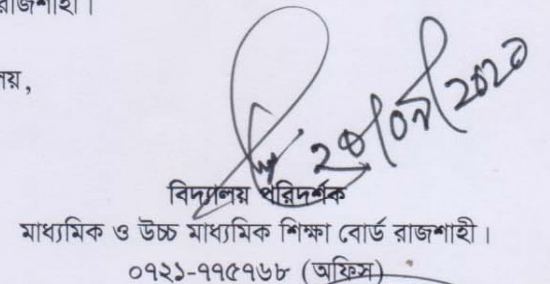 রাজশাহী।
লয়,
বিদ্যালয় পরিদর্শক
মাধ্যমিক ও উচ্চ মাধ্যমিক শিক্ষা বোর্ড রাজশাহী।
০৭২১-৭৭৫৭৬৮ (অফিস)